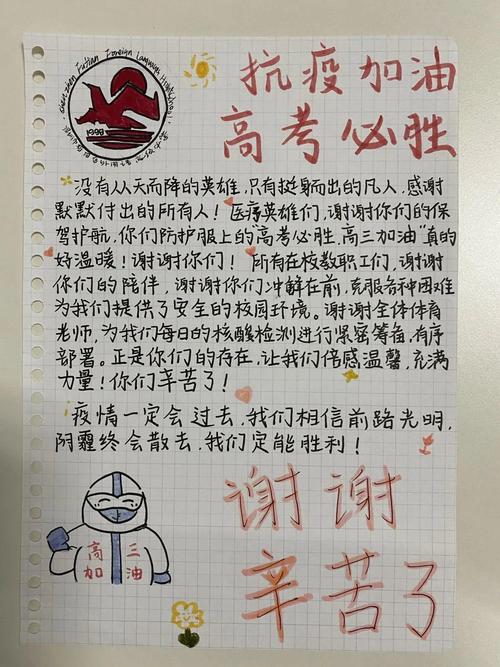 Shenzhen Futian Foreign Languages High School
1998
抗疫加油
高考必胜
没有从天而降的英雄,只有挺身而出的凡人,感谢
默默付出的所有人!医疗英雄们,谢谢你们的保
驾护航,你们防护服上的“高考必胜,高三加油”真的
好温暖!谢谢你们!所有在校教职工们,谢谢
你们的陪伴,谢谢你们冲锋在前,克服各种困难
为我们提供了安全的校园环境。谢谢全体体育
老师,为我们每日的核酸检测进行紧密筹备,有序
部署。正是你们的存在,让我们倍感温馨,充满
力量!你们辛苦了!
疫情一定会过去,我们相信前路光明,
阴霾终会散去,我们定能胜利!
高三
加油
谢谢
辛苦了